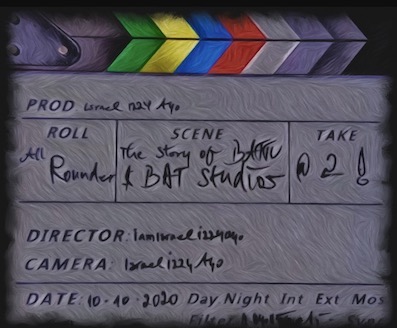 PROD israel i224 Ago
ROLL SCENE TAKE
All Rounder The Story of BATV & BAT Studios @ 2 !
DIRECTOR: Iamisraeli224ago
CAMERA: Israel i224 Ago
DATE: 10-10-2020 Day Night Int Ext Mos
Filter Sync